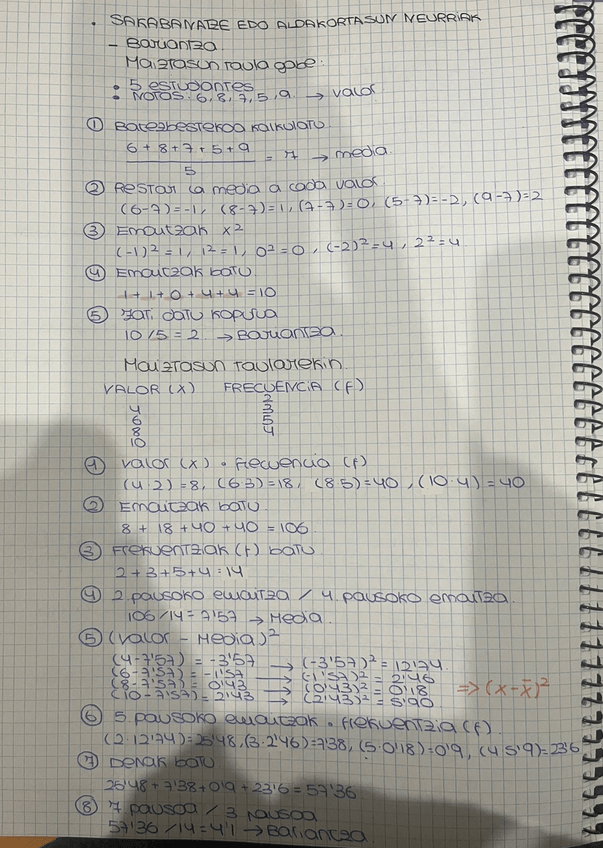 · SAKABANATZE EDO ALDAKORTASUN NEURRIAK
- Bariantza
Maiztasun taula gabe:
• 5 estudiantes
• Notas: 6, 8, 7, 5, 9 → valor
① Batezbestekoa kalkulatu
6 + 8 + 7 + 5 + 9 / 5 = 7 → media
② Restar la media a cada valor
(6-7) = -1, (8-7) = 1, (7-7) = 0, (5-7) = -2, (9-7) = 2
③ Emaitzak x²
(-1)² = 1, 1² = 1, 0² = 0, (-2)² = 4, 2² = 4
④ Emaitzak batu
1 + 1 + 0 + 4 + 4 = 10
⑤ zati datu kopurua
10/5 = 2 → Bariantza
Maiztasun taularekin
VALOR (X) FRECUENCIA (f)
4 2
6 3
8 5
10 4
① valor (x) · frecuencia (f)
(4·2) = 8, (6·3) = 18, (8·5) = 40, (10·4) = 40
② Emaitzak batu
8 + 18 + 40 + 40 = 106
③ Frekuentziak (f) batu
2 + 3 + 5 + 4 = 14
④ 2. pausoko emaitza / 4. pausoko emaitza
106/14 = 7'57 → Media
⑤ (valor - Media)²
(4-7'57) = -3'57 → (-3'57)² = 12'74
(6-7'57) = -1'57 → (-1'57)² = 2'46
(8-7'57) = 0'43 → (0'43)² = 0'18 ⇒ (x-x̄)²
(10-7'57) = 2'43 → (2'43)² = 5'90
⑥ 5. pausoko emaitzak · frekuentzia (f)
(2·12'74) = 25'48, (3·2'46) = 7'38, (5·0'18) = 0'9, (4·5'9) = 23'6
⑦ Denak batu
25'48 + 7'38 + 0'9 + 23'6 = 57'36
⑧ 7. pausoa / 3. pausoa
57'36/14 = 4'1 → Bariantza